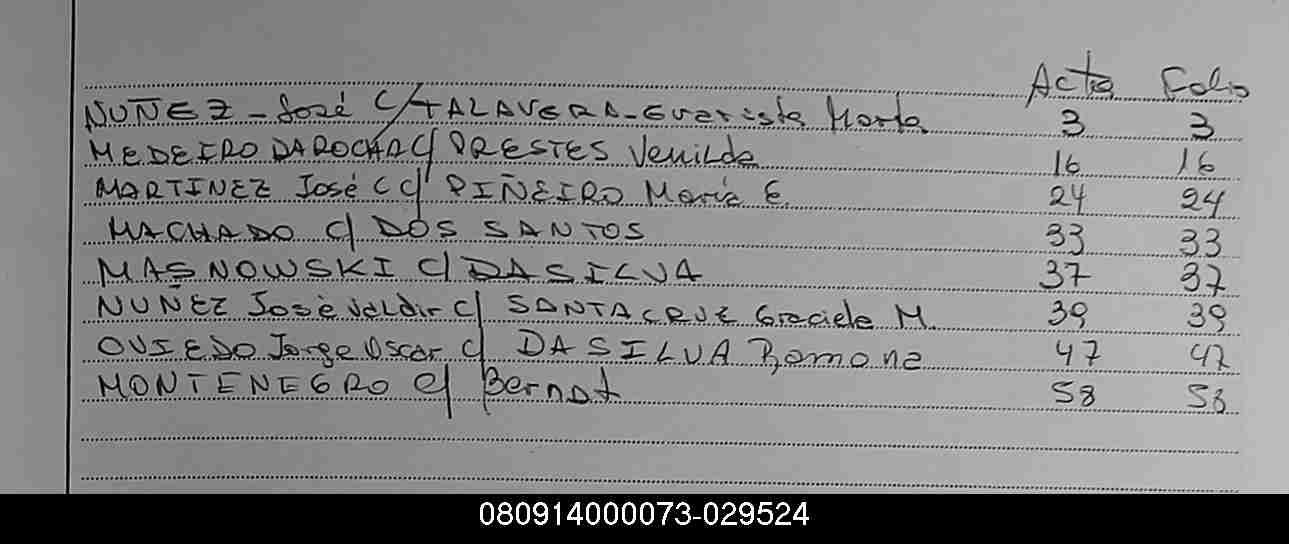 Acta Folio
NUÑEZ - José C/ TALAVERA - Evarista Marta 3 3
MEDEIRO DAROCHA C/ PRESTES Venilda 16 16
MARTINEZ José C C/ PIÑEIRO María E. 24 24
MACHADO C/ DOS SANTOS 33 33
MASNOWSKI C/ DA SILVA 37 37
NUÑEZ José Valdir C/ SANTACRUZ Graciela M. 39 39
OVIEDO Jorge Oscar C/ DA SILVA Ramona 47 47
MONTENEGRO C/ Bernat 58 58
080914000073-029524